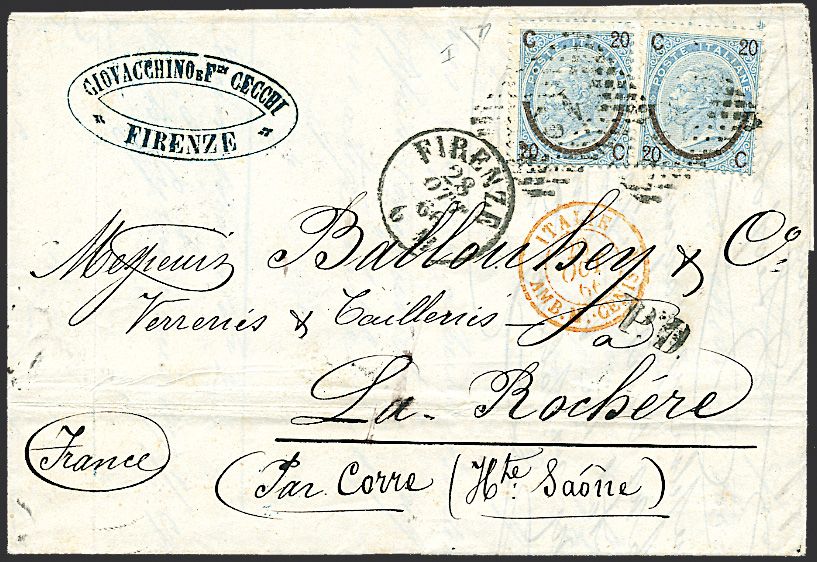 GIOVACCHINO E F.LLI CECCHI
" FIRENZE "
C 20
POSTE ITALIANE
20 C
C 20
POSTE ITALIANE
20 C
FIRENZE
28
OTT
66
ITALIE
OCT
66
AMB. M. CENIS
P.D.
Messieurs Ballouhey & Co
Verreries & Tailleries à
La Rochére
France
(Par Corre (Hte Saône)